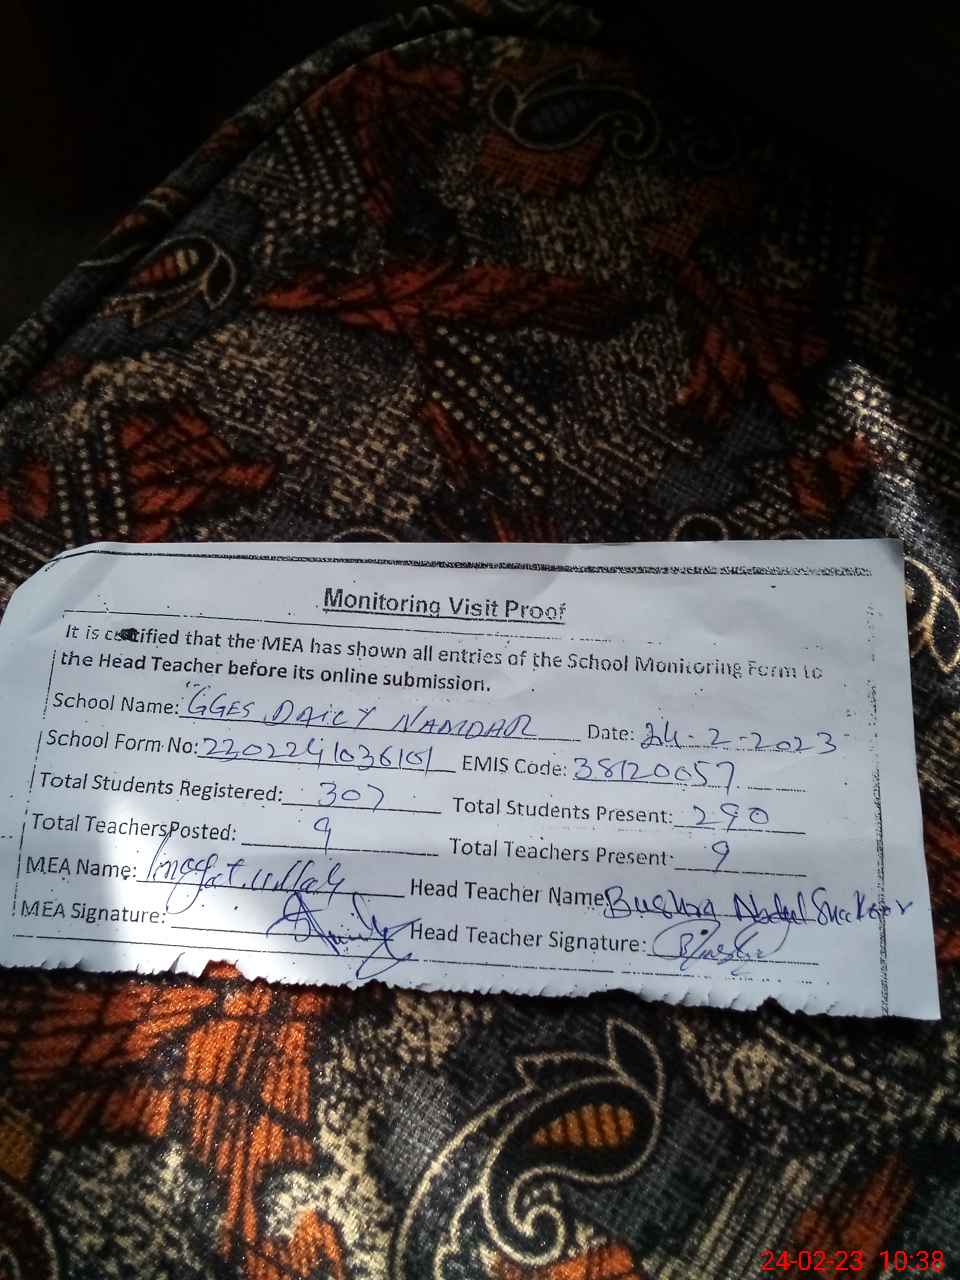 Monitoring Visit Proof
It is certified that the MEA has shown all entries of the School Monitoring Form to
the Head Teacher before its online submission.
School Name: GGES DAILY NAMDAR Date: 24-2-2023
School Form No: EMIS Code: 38120057
Total Students Registered: 307 Total Students Present: 290
Total Teachers Posted: 9 Total Teachers Present: 9
MEA Name: Head Teacher Name Bushra Abdul Shakoor
MEA Signature: Head Teacher Signature: Bushra
24-02-23 10:38